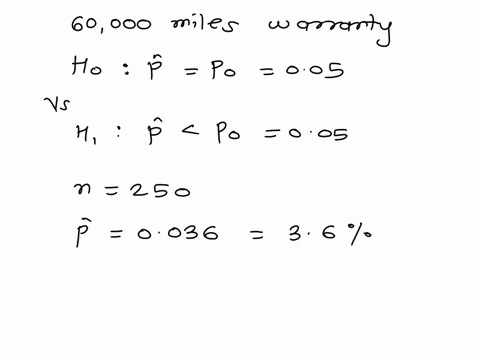 60,000 miles warranty
H₀ : p̂ = P₀ = 0.05
Vs
H₁ : p̂ < P₀ = 0.05
n = 250
p̂ = 0.036 = 3.6 %